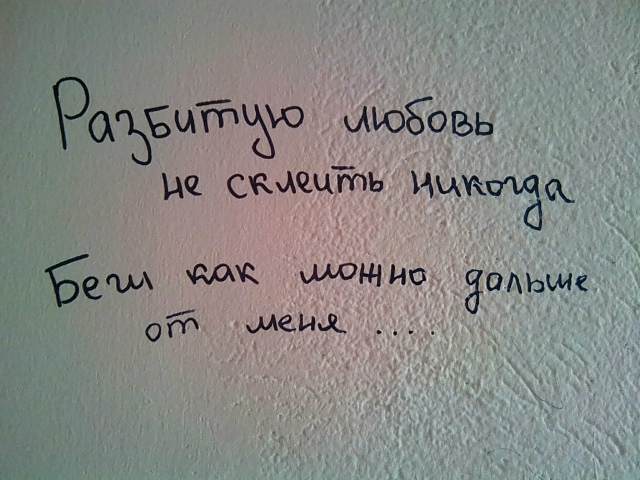 Разбитую любовь
не склеить никогда
Беги как можно дальше
от меня ....